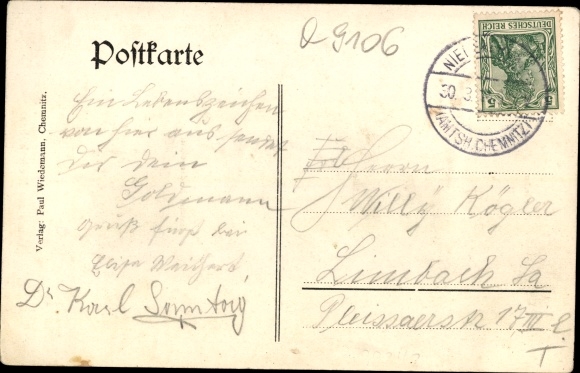 Postkarte
Q 9106
DEUTSCHES REICH
5 5
30. 3.
(AMTSH. CHEMNITZ)
Verlag: Paul Wiedemann, Chemnitz.
Ein Lebenszeichen
von hier aus sendet
Dir dein
Goldmann
Gruß
Elisa Weichert
Dr. Karl Sonntag
Herrn
Willy Kögler
Limbach Sa
Pleissaerstr 17 III l